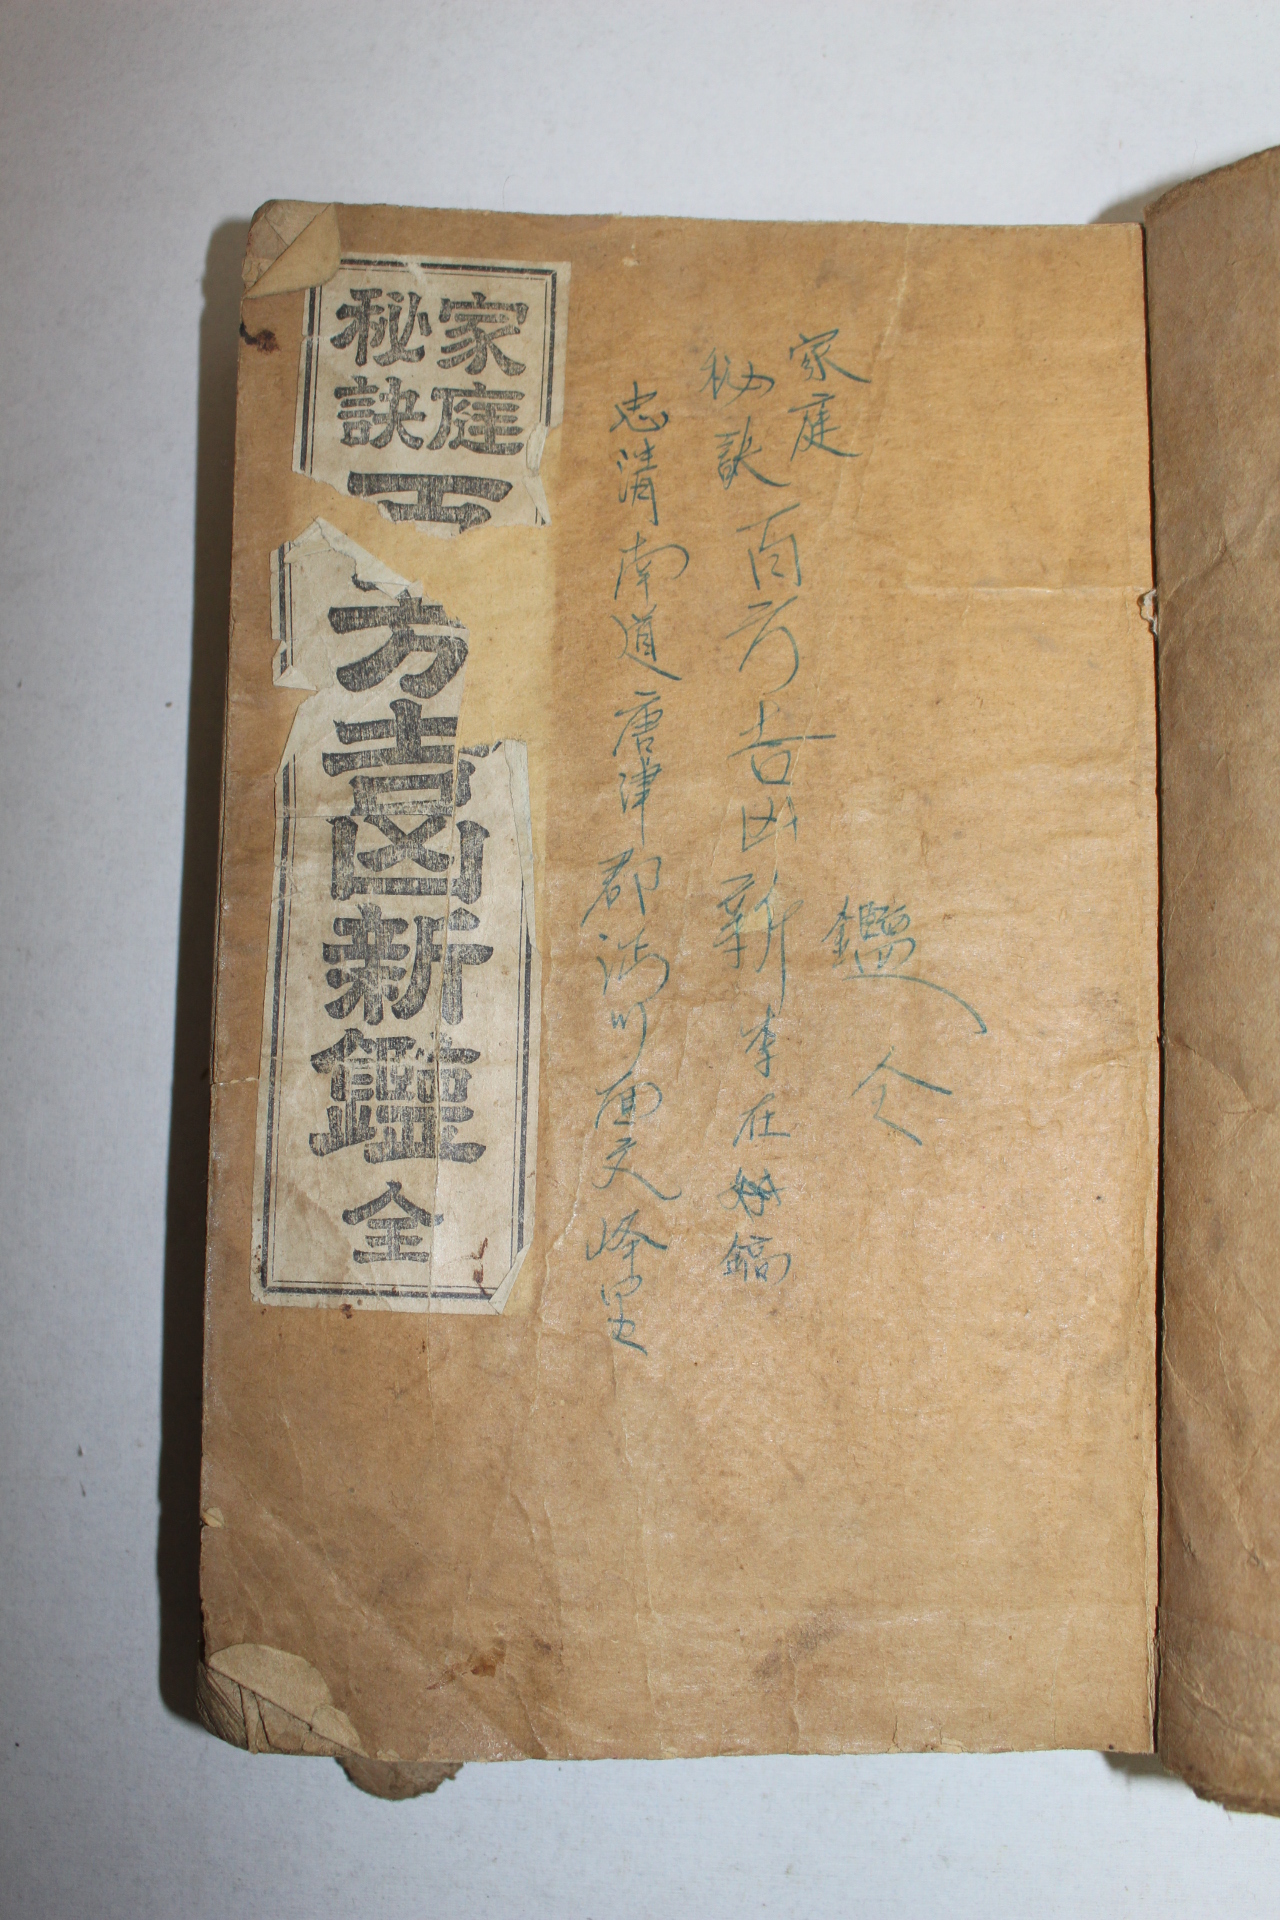 家庭
秘訣
百方吉凶新鑑 全
家庭
秘訣
百方吉凶新
鑑 全
李在鎬
忠淸南道唐津郡
面
里